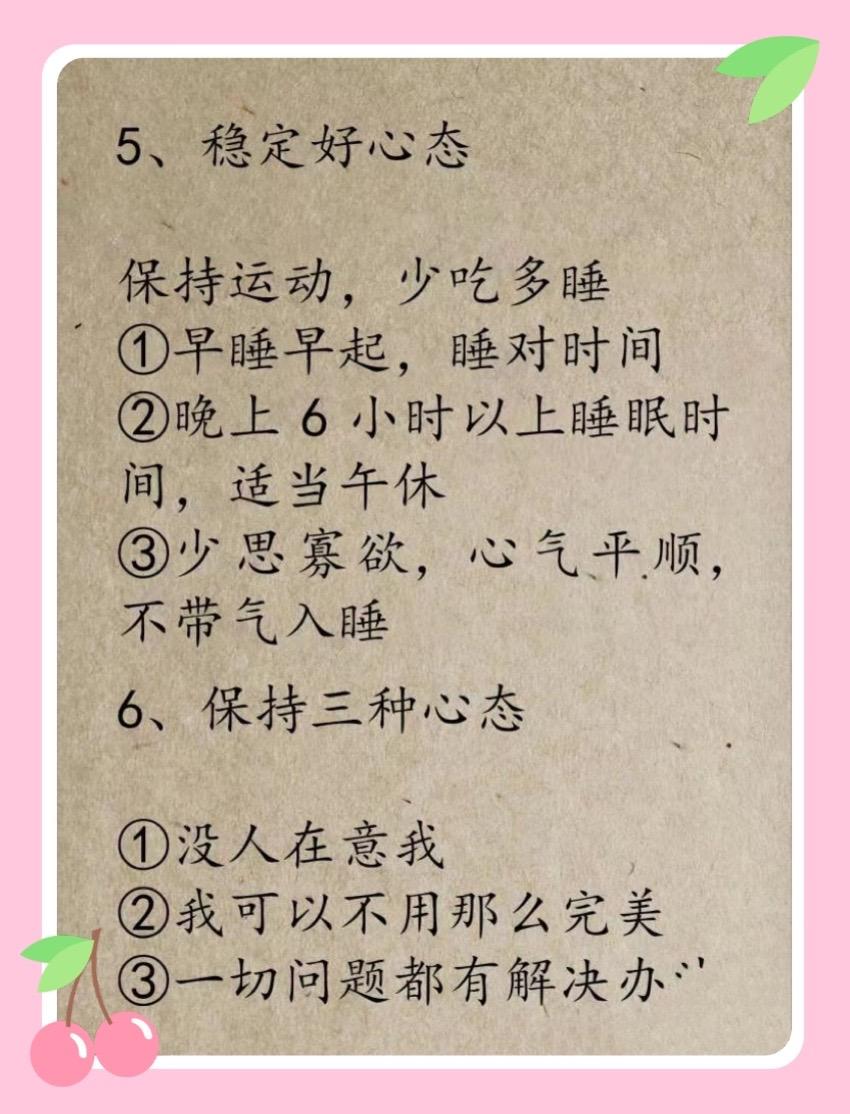 5、稳定好心态
保持运动，少吃多睡
①早睡早起，睡对时间
②晚上 6 小时以上睡眠时
间，适当午休
③少思寡欲，心气平顺，
不带气入睡
6、保持三种心态
①没人在意我
②我可以不用那么完美
③一切问题都有解决办